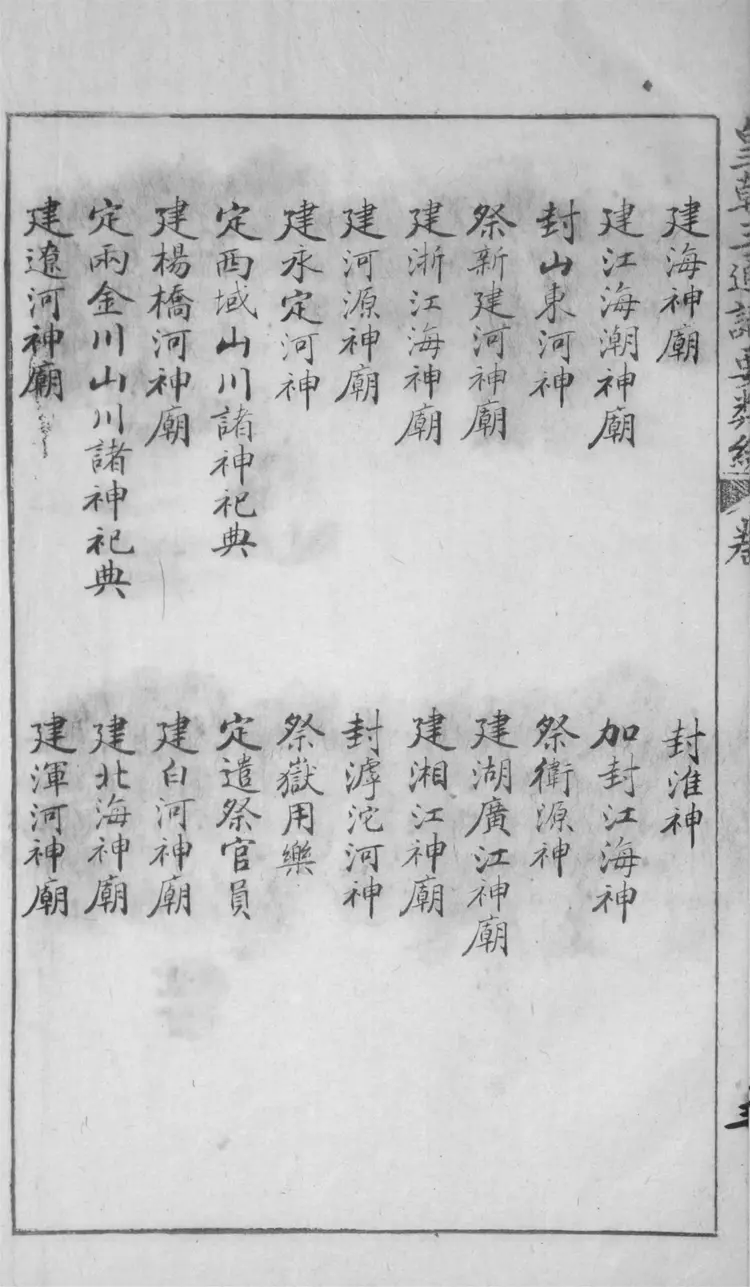 建海神廟
封淮神
建江海潮神廟
加封江海神
封山東河神
祭衛源神
祭新建河神廟
建湖廣江神廟
建浙江海神廟
建湘江神廟
建河源神廟
封滹沱河神
建永定河神
祭嶽用樂
定西域山川諸神祀典
定遣祭官員
建楊橋河神廟
建白河神廟
定兩金川山川諸神祀典
建北海神廟
建遼河神廟
建渾河神廟
皇朝三通識要類編
卷
三